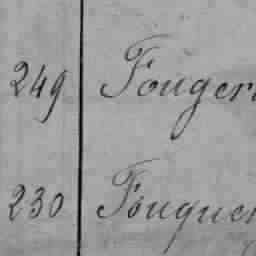 249 Fouger
230 Fouquer